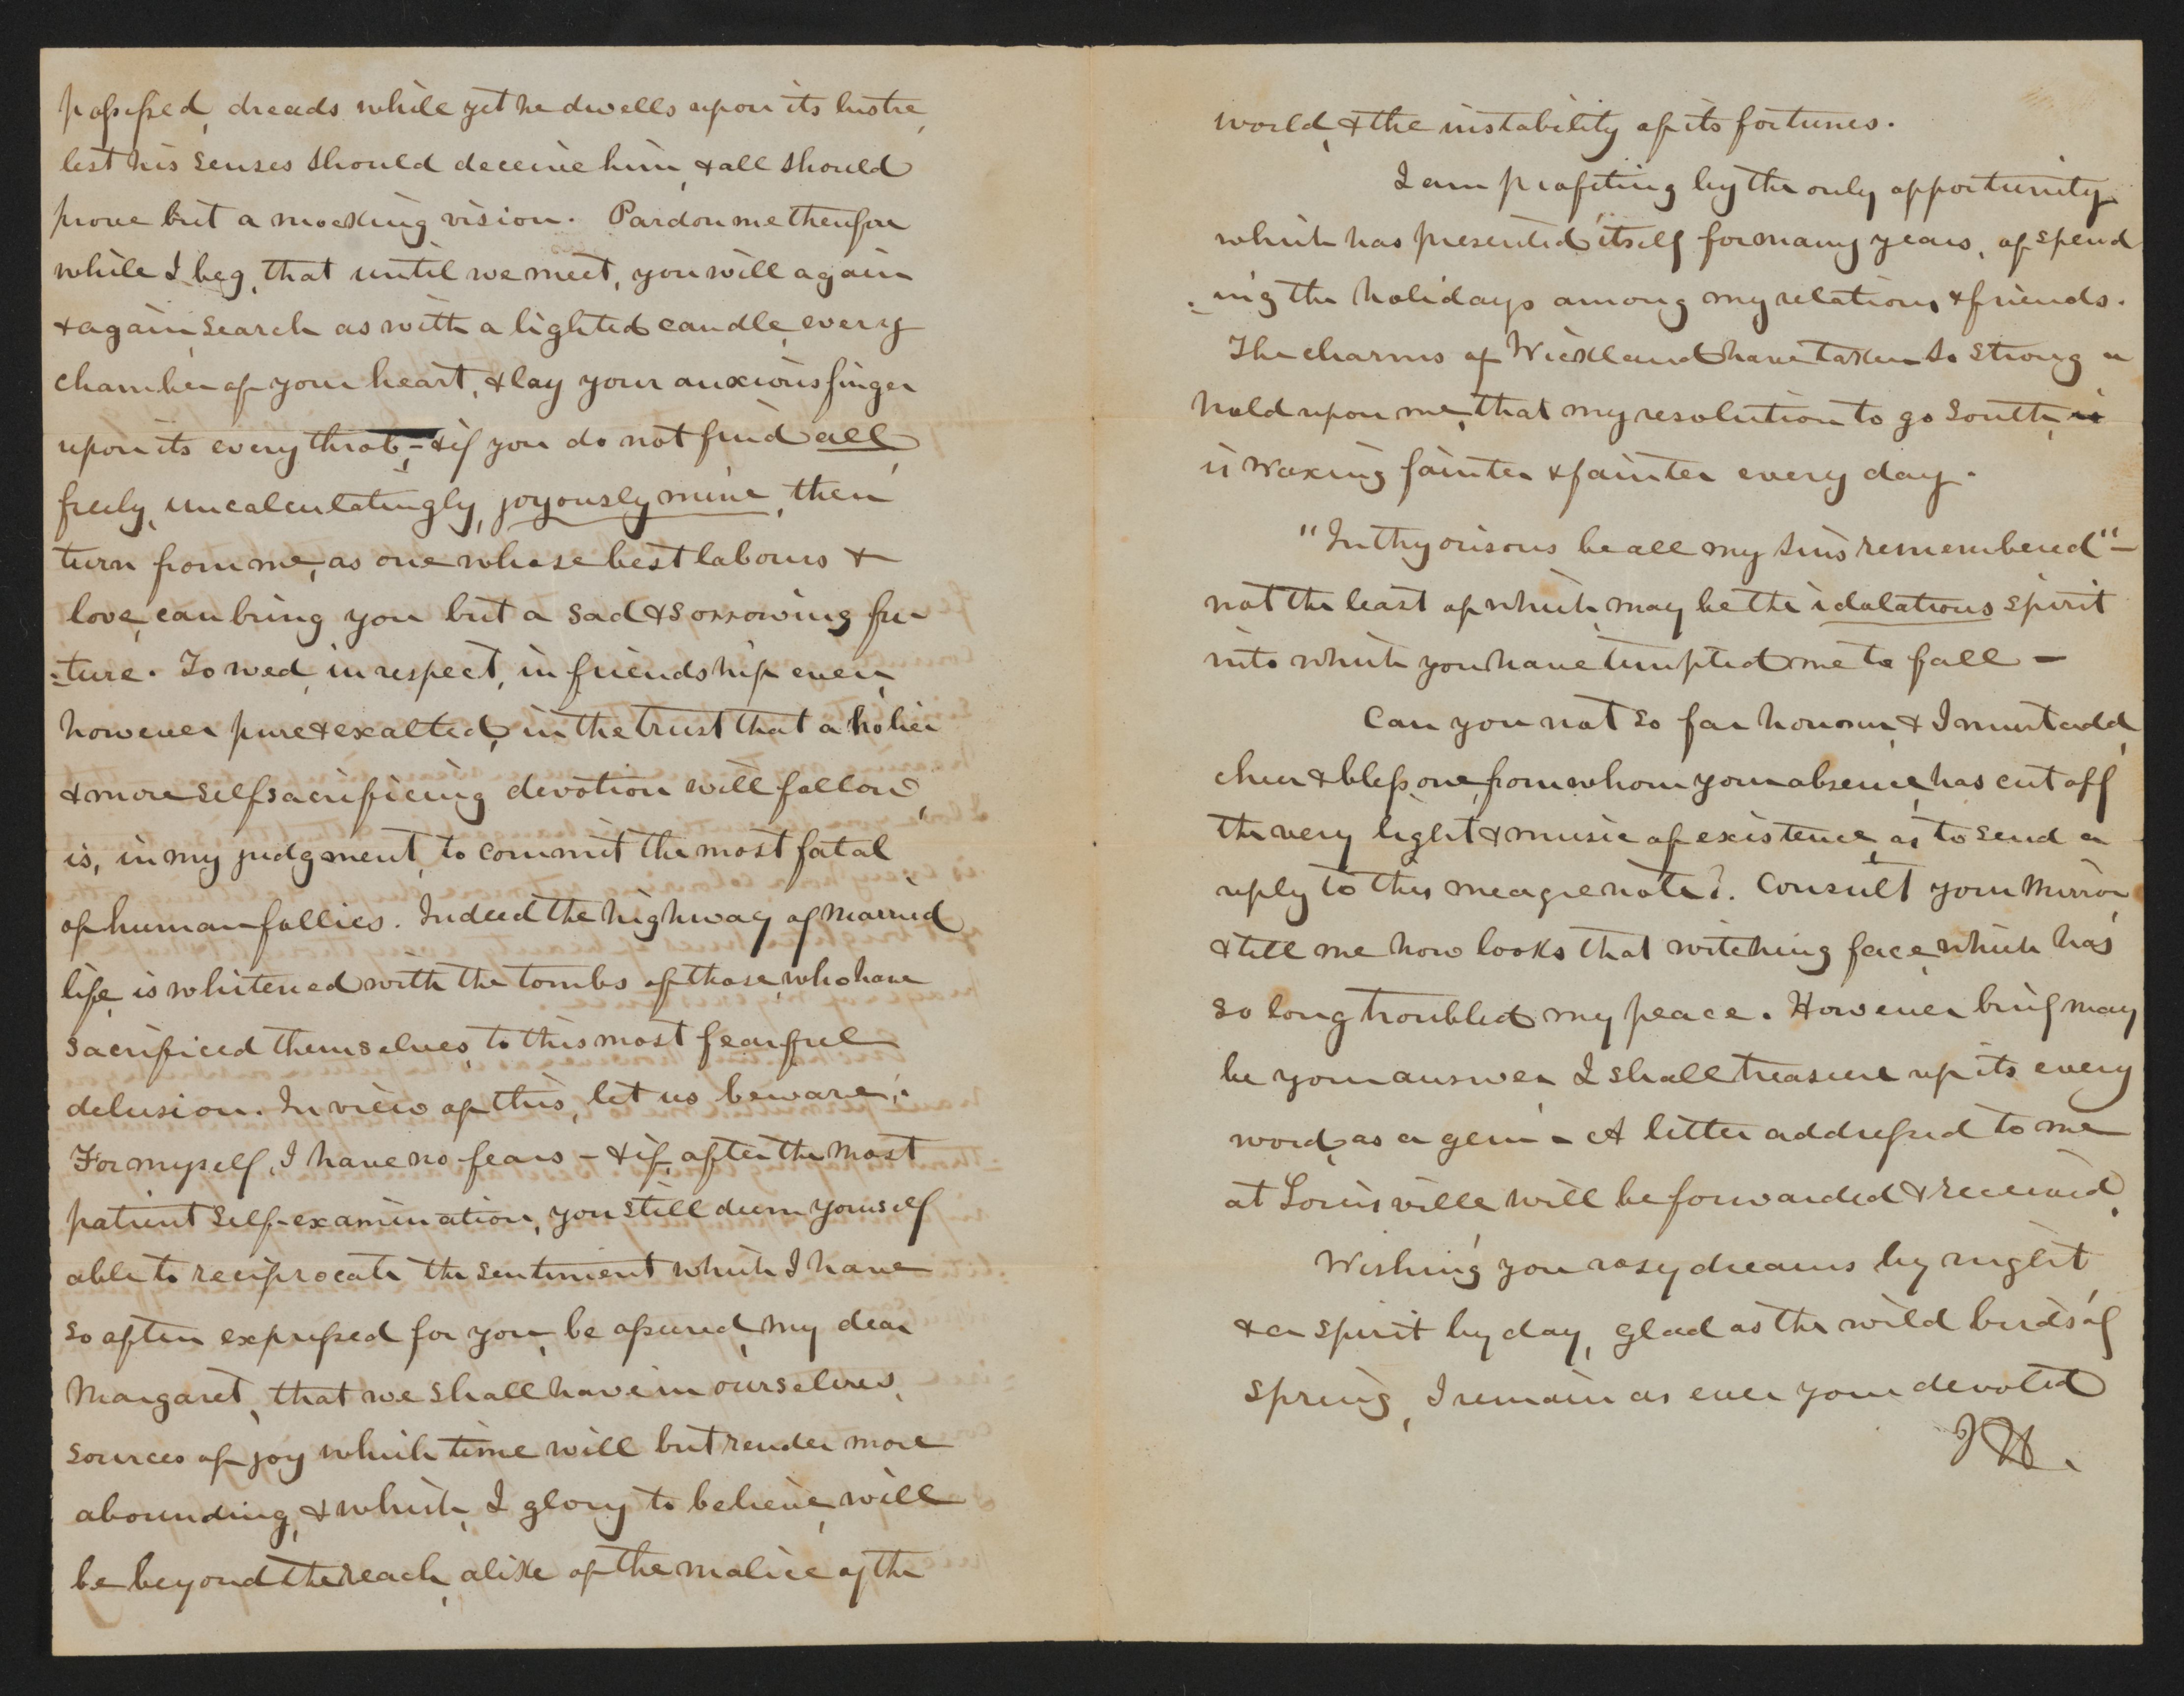 possessed, dreads while yet he dwells upon its lustre,
lest his senses should deceive him, & all should
prove but a mocking vision. Pardon me therefore
while I beg, that until we meet, you will again
& again, search as with a lighted candle, every
chamber of your heart, & lay your anxious finger
upon its every throb, - & if you do not find all,
freely, uncalculatingly, joyously mine, then
turn from me, as one whose best labours &
love, can bring you but a sad & sorrowing fu-
-ture. To wed, in respect, in friendship even,
however pure & exalted, in the trust that a holier
& more selfsacrificing devotion will follow,
is, in my judgment, to commit the most fatal,
of human follies. Indeed the highway of married
life, is whitened with the tombs of those, who have
sacrificed themselves, to this most fearful
delusion. In view of this, let us beware,.
For myself, I have no fears - & if, after the most
patient self-examination, you still deem yourself
able to reciprocate the sentiment which I have
so often expressed for you, be assured, my dear
Margaret, that we shall have in ourselves,
sources of joy which time will but render more
abounding, & which, I glory to believe, will
be beyond the reach, alike of the malice of the
world, & the instability of its fortunes.
I am profiting by the only opportunity
which has presented itself for many years, of spend
-ing the holidays among my relations & friends.
The charms of Wickland have taken so strong a
hold upon me, that my resolution to go South, is
is waxing fainter & fainter every day.
"In thy orisons be all my sins remembered" -
not the least of which, may be the idolatrous spirit
into which you have tempted me to fall -
Can you not so far honour, & I must add,
cheer & bless one, from whom your absence, has cut off
the very light & music of existence, as to send a
reply to this meagre note?. Consult your mirror,
& tell me how looks that witching face, which has
so long troubled my peace. However brief may
be your answer I shall treasure up its every
word, as a gem - A letter addressed to me
at Louisville will be forwarded & received.
Wishing you rosy dreams by night
& a spirit by day, glad as the wild birds of
spring, I remain as ever your devoted
JH.